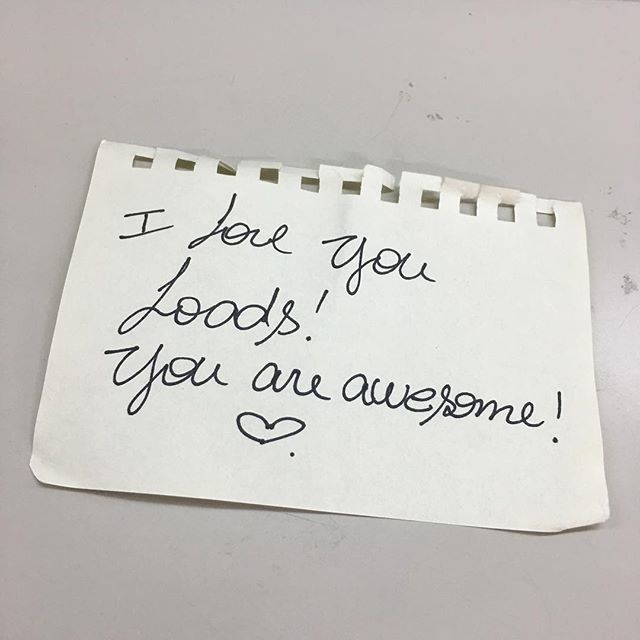 I love you
Loads!
You are awesome!
♡.